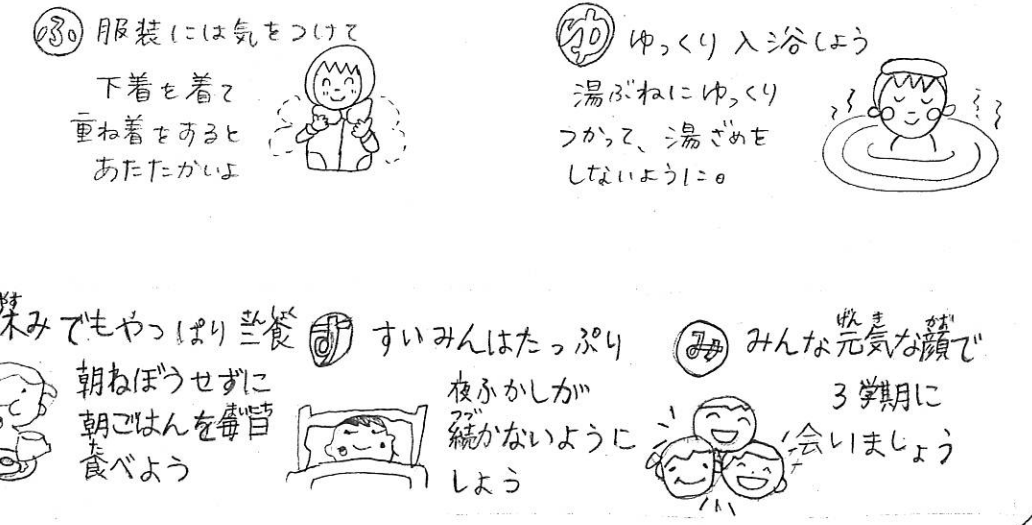 ふ 服装には気をつけて
下着を着て
重ね着をすると
あたたかいよ
ゆ ゆっくり入浴しよう
湯ぶねにゆっくり
つかって、湯ざめを
しないように。
休みでもやっぱり三食
朝ねぼうせずに
朝ごはんを毎日
食べよう
す すいみんはたっぷり
夜ふかしが
続かないように
しよう
み みんな元気な顔で
3学期に
会いましょう